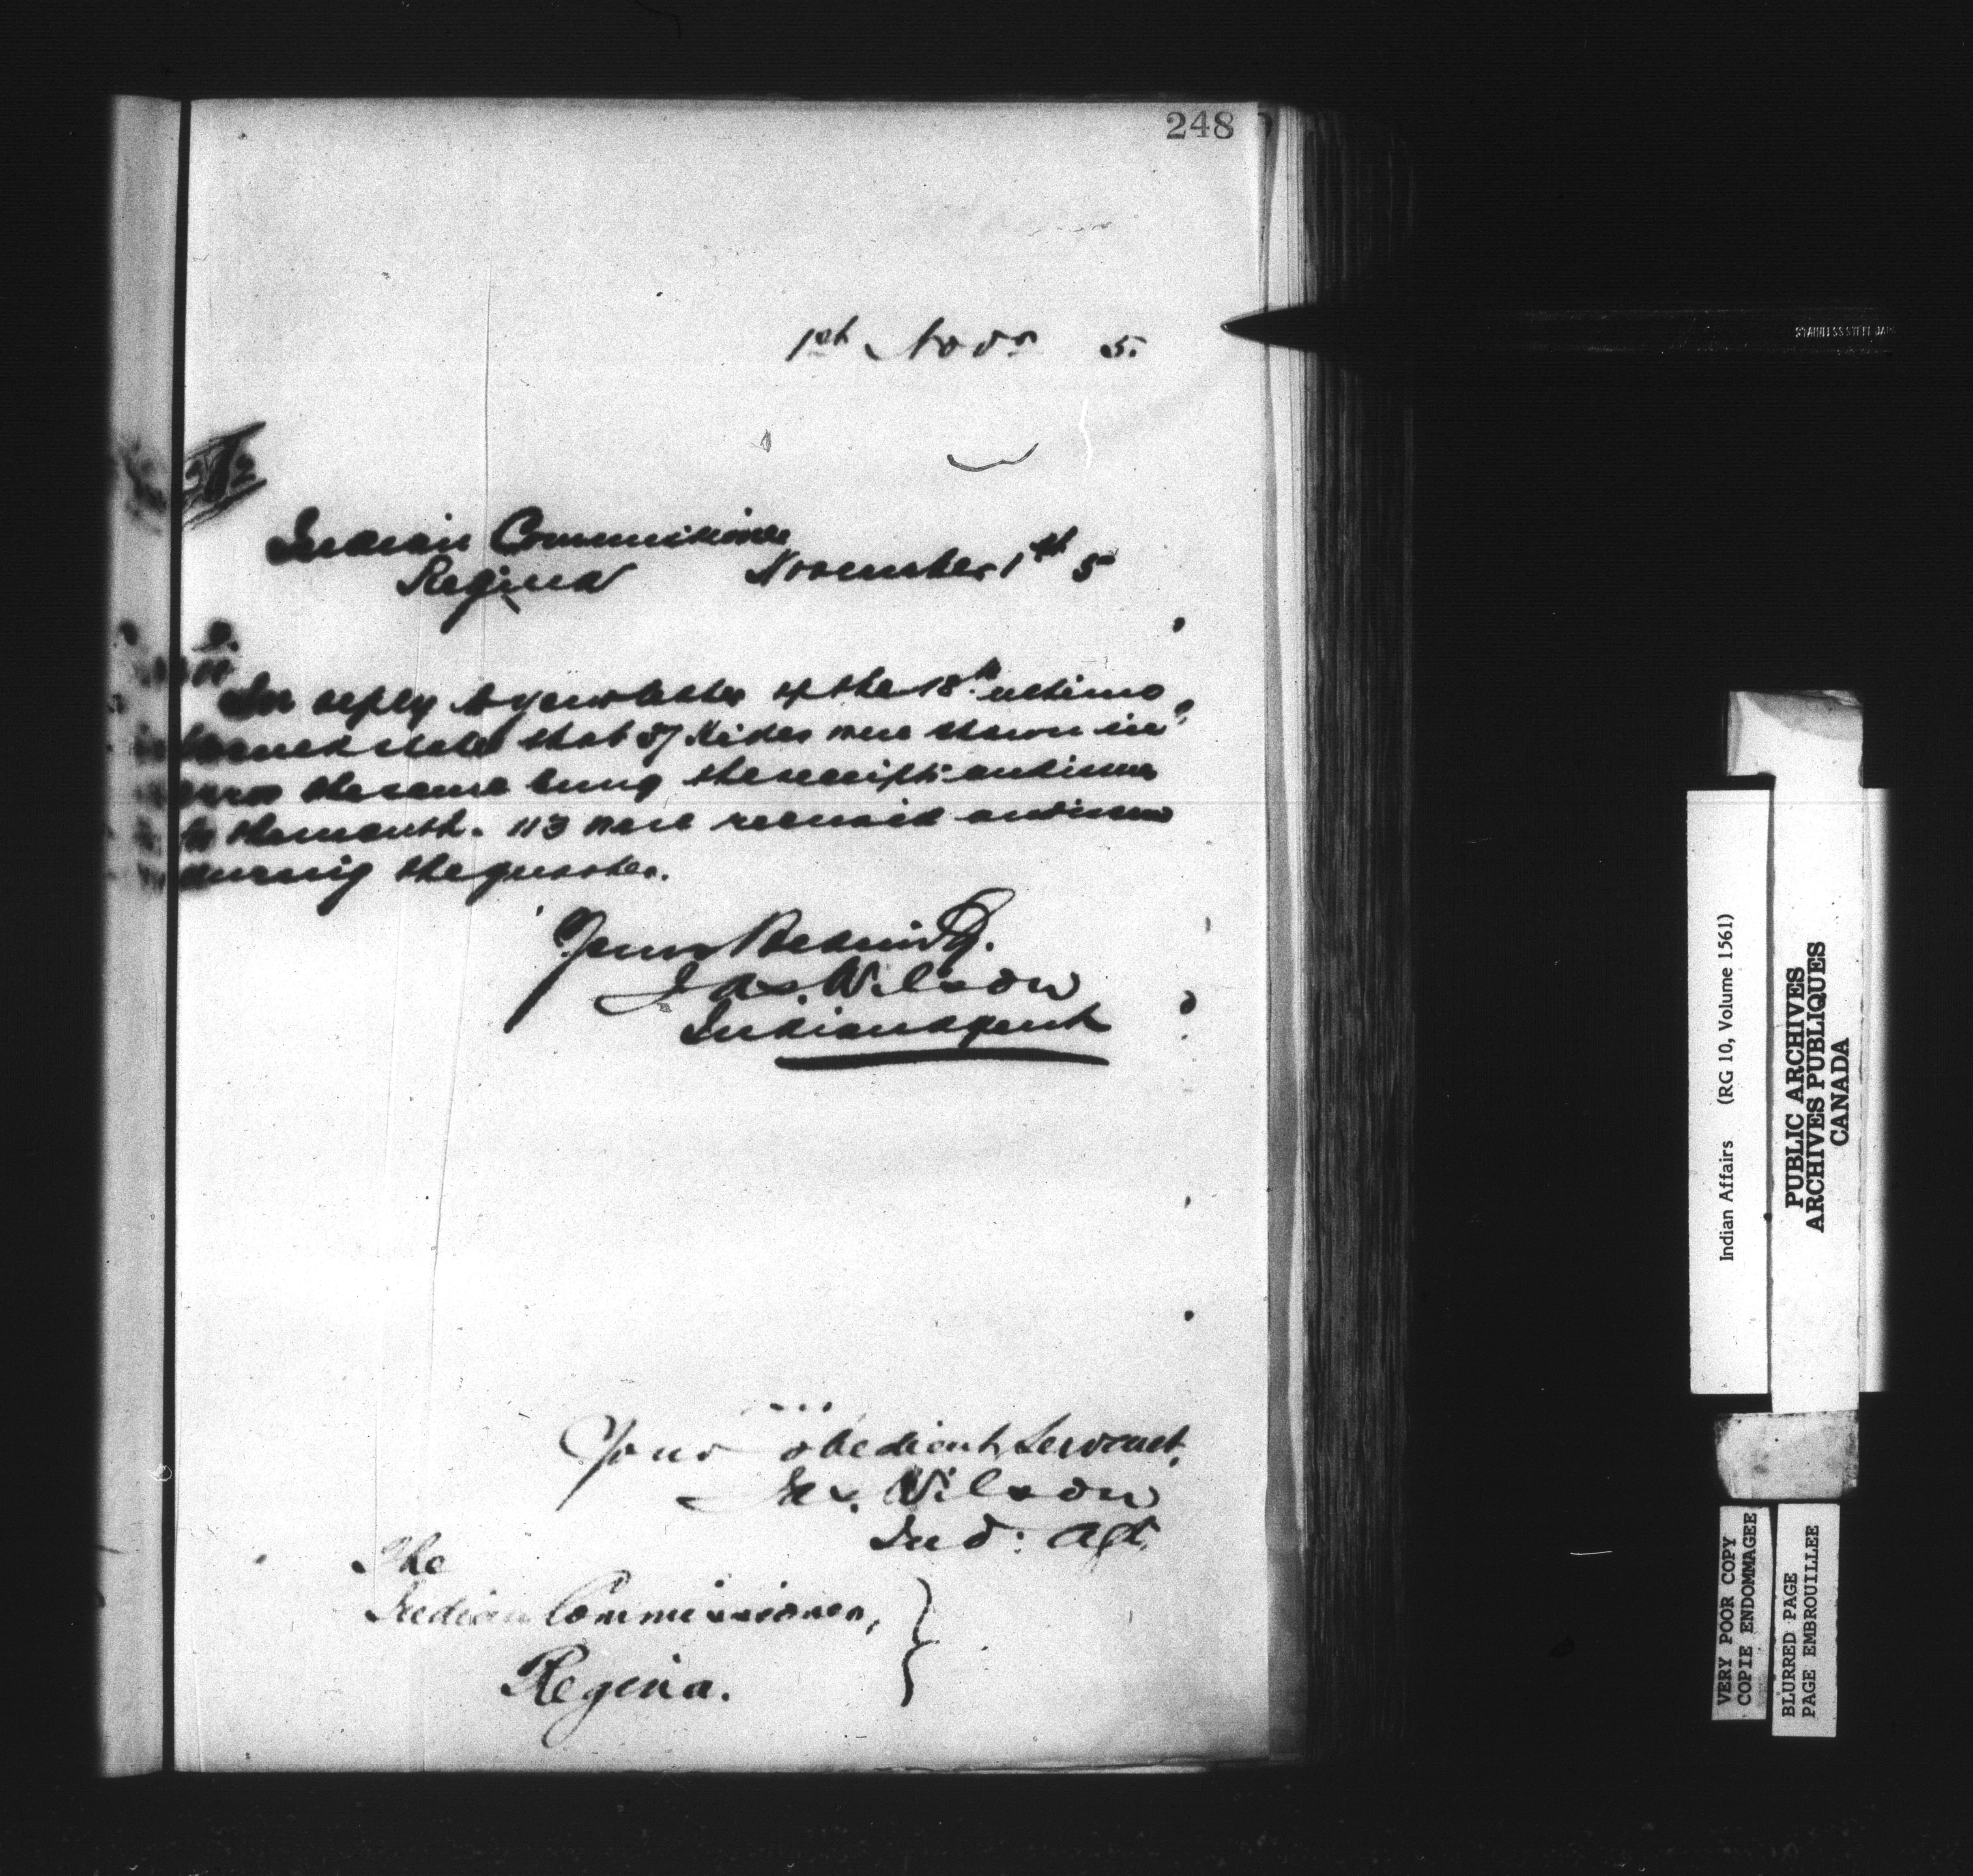 248
1st Novr 5.
Indian Commissioner
Regina November 1st 5
In reply to your letter of the 18th ultimo
that 57 Hides were shown in
error the same being the receipts and issues
for the month. 113 were received and issued
during the quarter.
Your Obedient
Jas. Wilson
Indian Agent
Your obedient Servant,
Jas. Wilson
Ind: Agt.
The
Indian Commissioner,
Regina.
STAINLESS STEEL JAPAN
Indian Affairs (RG 10, Volume 1561)
PUBLIC ARCHIVES
ARCHIVES PUBLIQUES
CANADA
VERY POOR COPY
COPIE ENDOMMAGEE
BLURRED PAGE
PAGE EMBROUILLEE